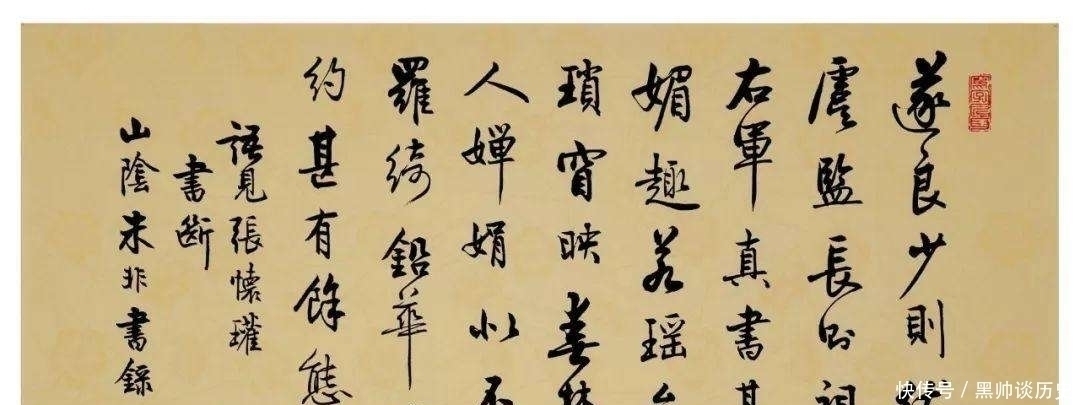 遂良少則
虞監長則
右軍真書甚
媚趣若瑶
瑣窅映春林
人嬋娟似不
羅綺鉛華
約甚有餘態
語見張懷瓘
書斷
山陰朱非書録
快传号 / 黑帅谈历史